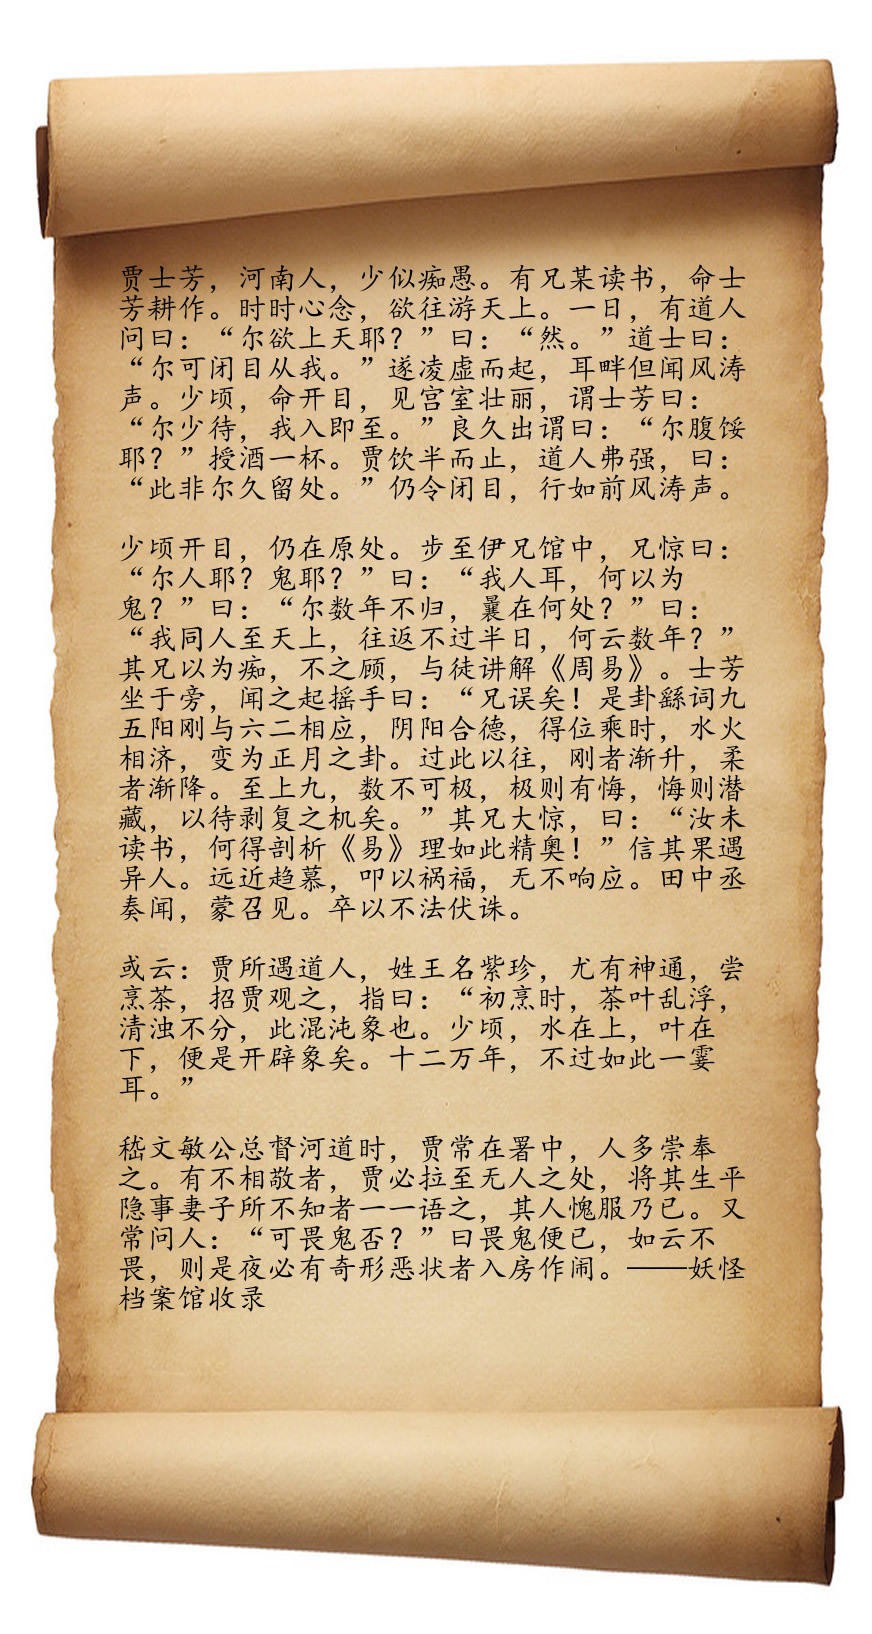 贾士芳，河南人，少似痴愚。有兄某读书，命士
芳耕作。时时心念，欲往游天上。一日，有道人
问曰：“尔欲上天耶？”曰：“然。”道士曰：
“尔可闭目从我。”遂凌虚而起，耳畔但闻风涛
声。少顷，命开目，见宫室壮丽，谓士芳曰：
“尔少待，我入即至。”良久出谓曰：“尔腹馁
耶？”授酒一杯。贾饮半而止，道人弗强，曰：
“此非尔久留处。”仍令闭目，行如前风涛声。
少顷开目，仍在原处。步至伊兄馆中，兄惊曰：
“尔人耶？鬼耶？”曰：“我人耳，何以为
鬼？”曰：“尔数年不归，曩在何处？”曰：
“我同人至天上，往返不过半日，何云数年？”
其兄以为痴，不之顾，与徒讲解《周易》。士芳
坐于旁，闻之起摇手曰：“兄误矣！是卦繇词九
五阳刚与六二相应，阴阳合德，得位乘时，水火
相济，变为正月之卦。过此以往，刚者渐升，柔
者渐降。至上九，数不可极，极则有悔，悔则潜
藏，以待剥复之机矣。”其兄大惊，曰：“汝未
读书，何得剖析《易》理如此精奥！”信其果遇
异人。远近趋慕，叩以祸福，无不响应。田中丞
奏闻，蒙召见。卒以不法伏诛。
或云：贾所遇道人，姓王名紫珍，尤有神通，尝
烹茶，招贾观之，指曰：“初烹时，茶叶乱浮，
清浊不分，此混沌象也。少顷，水在上，叶在
下，便是开辟象矣。十二万年，不过如此一霎
耳。”
嵇文敏公总督河道时，贾常在署中，人多崇奉
之。有不相敬者，贾必拉至无人之处，将其生平
隐事妻子所不知者一一语之，其人愧服乃已。又
常问人：“可畏鬼否？”曰畏鬼便已，如云不
畏，则是夜必有奇形恶状者入房作闹。——妖怪
档案馆收录